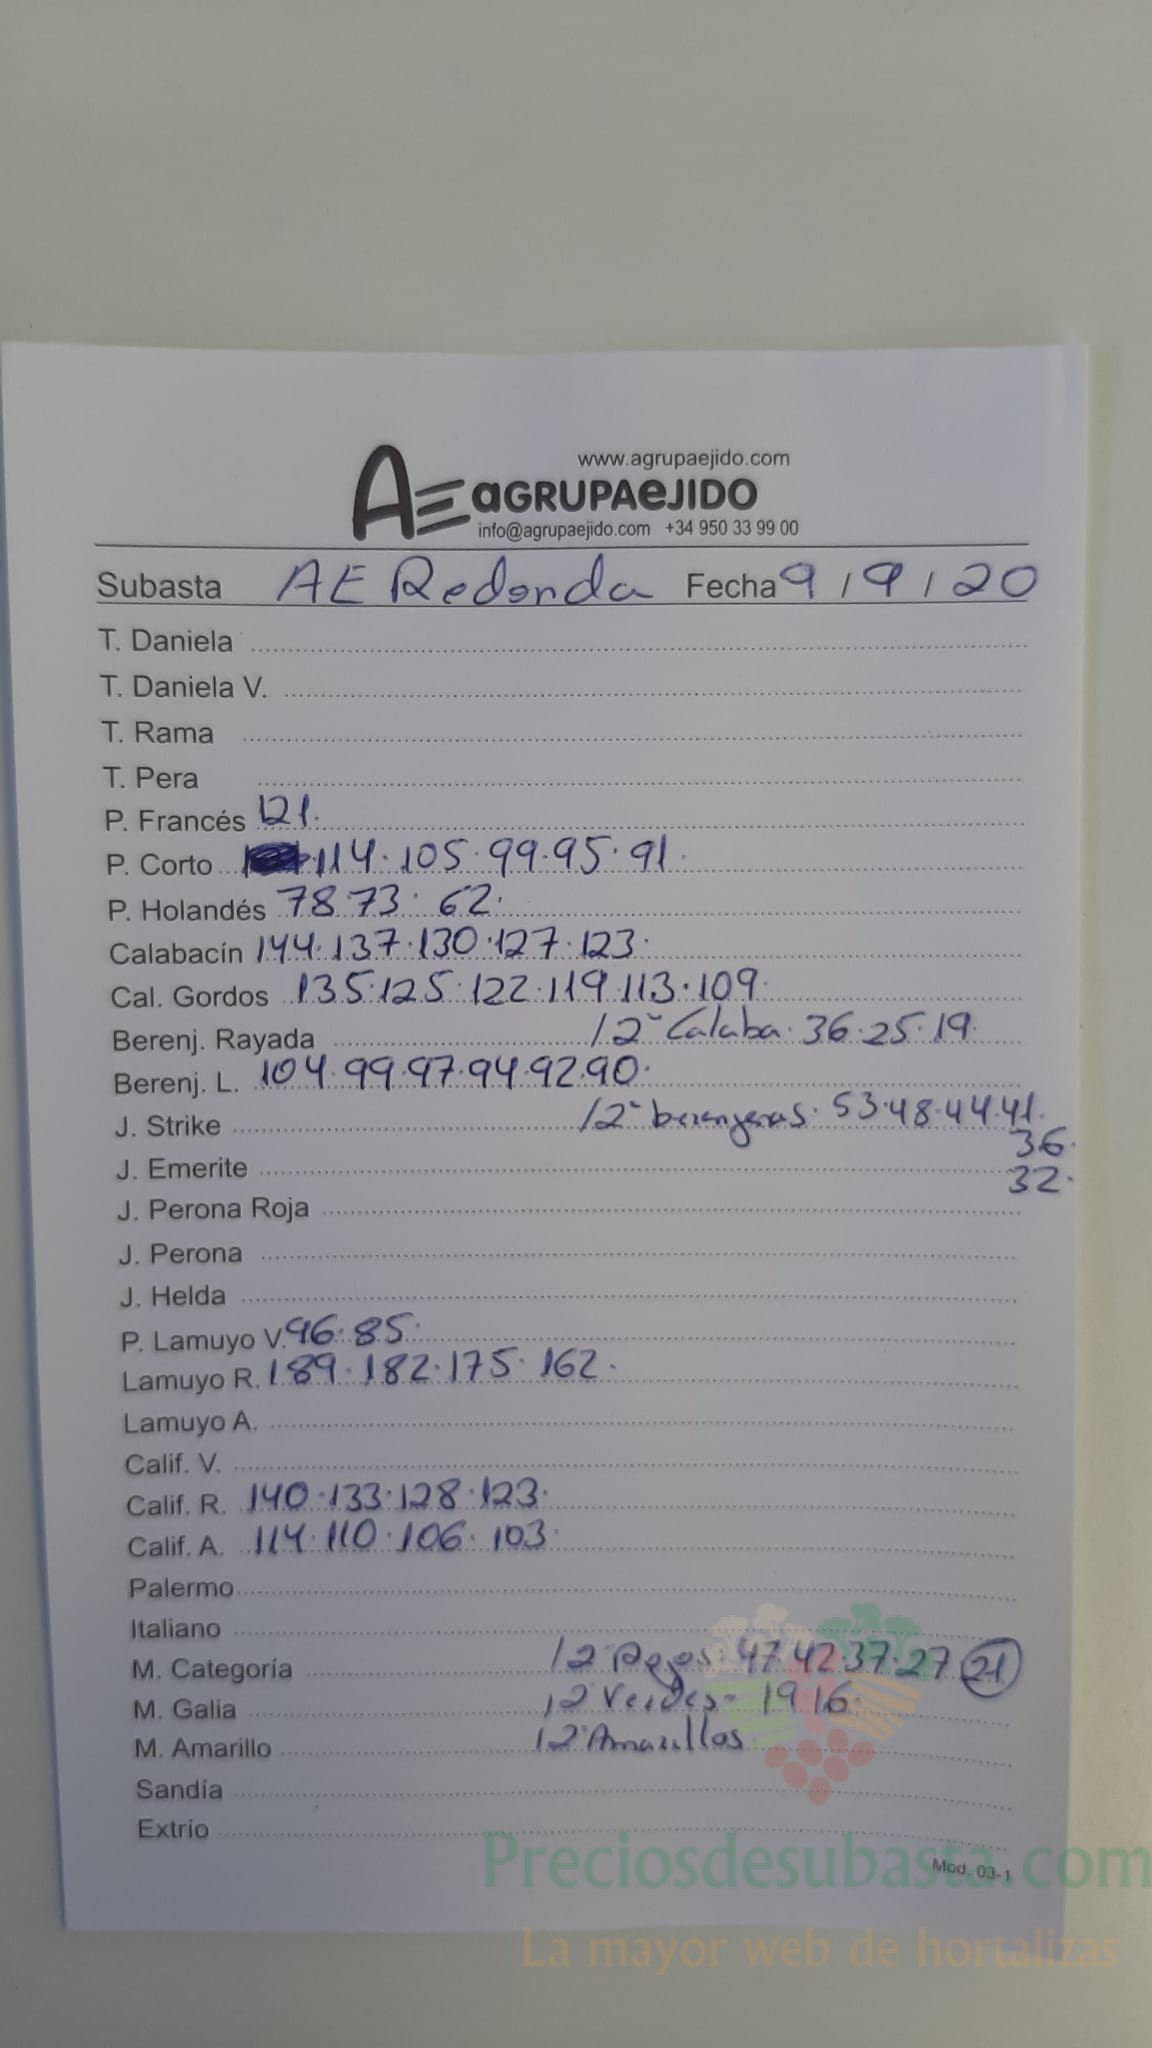 www.agrupaejido.com
AE aGRUPAeJIDO
info@agrupaejido.com +34 950 33 99 00
Subasta AE Redonda Fecha 9/9/20
T. Daniela
T. Daniela V.
T. Rama
T. Pera
P. Francés 121.
P. Corto 114. 105. 99. 95. 91.
P. Holandés 78. 73. 62.
Calabacín 144. 137. 130. 127. 123.
Cal. Gordos 135. 125. 122. 119. 113. 109.
Berenj. Rayada /2ª Calaba. 36. 25. 19.
Berenj. L. 104. 99. 97. 94. 92. 90.
J. Strike /2ª berenjenas. 53. 48. 44. 41.
36.
J. Emerite 32.
J. Perona Roja
J. Perona
J. Helda
P. Lamuyo V. 96. 85.
Lamuyo R. 189. 182. 175. 162.
Lamuyo A.
Calif. V.
Calif. R. 140. 133. 128. 123.
Calif. A. 114. 110. 106. 103
Palermo
Italiano
M. Categoría /2ª 47. 42. 37. 27 21
M. Galia /2ª Verdes- 19 16.
M. Amarillo /2ª Amarillos
Sandía
Extrío
Mod. 03-1
Preciosdesubasta.com
La mayor web de hortalizas